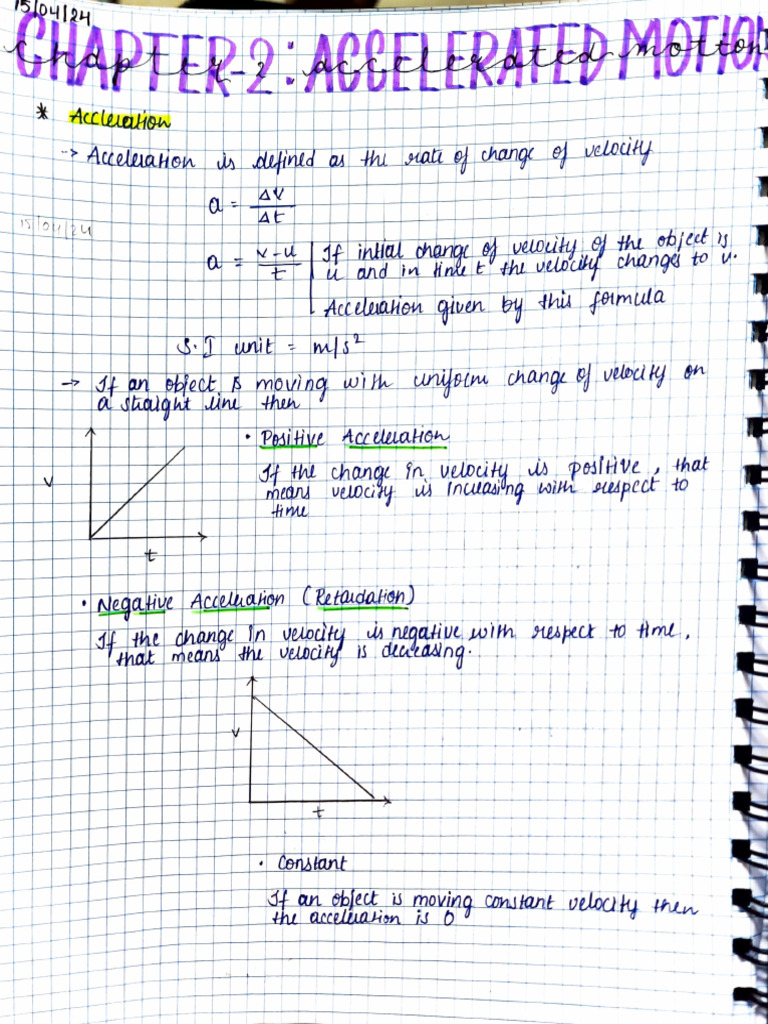 15/04/24
CHAPTER-2: ACCELERATED MOTION
chapter 2: accelerated motion
* Accleration
-> Acceleration is defined as the rate of change of velocity
a = Δv/Δt
15/04/24
a = v-u/t | If initial change of velocity of the object is
u and in time t the velocity changes to v.
Acceleration given by this formula
S.I unit = m/s²
→ If an object is moving with uniform change of velocity on
a straight line then
• Positive Acceleration
If the change in velocity is positive, that
means velocity is increasing with respect to
time
v
t
• Negative Acceleration (Retardation)
If the change in velocity is negative with respect to time,
that means the velocity is decreasing.
v
t
• Constant
If an object is moving constant velocity then
the acceleration is 0